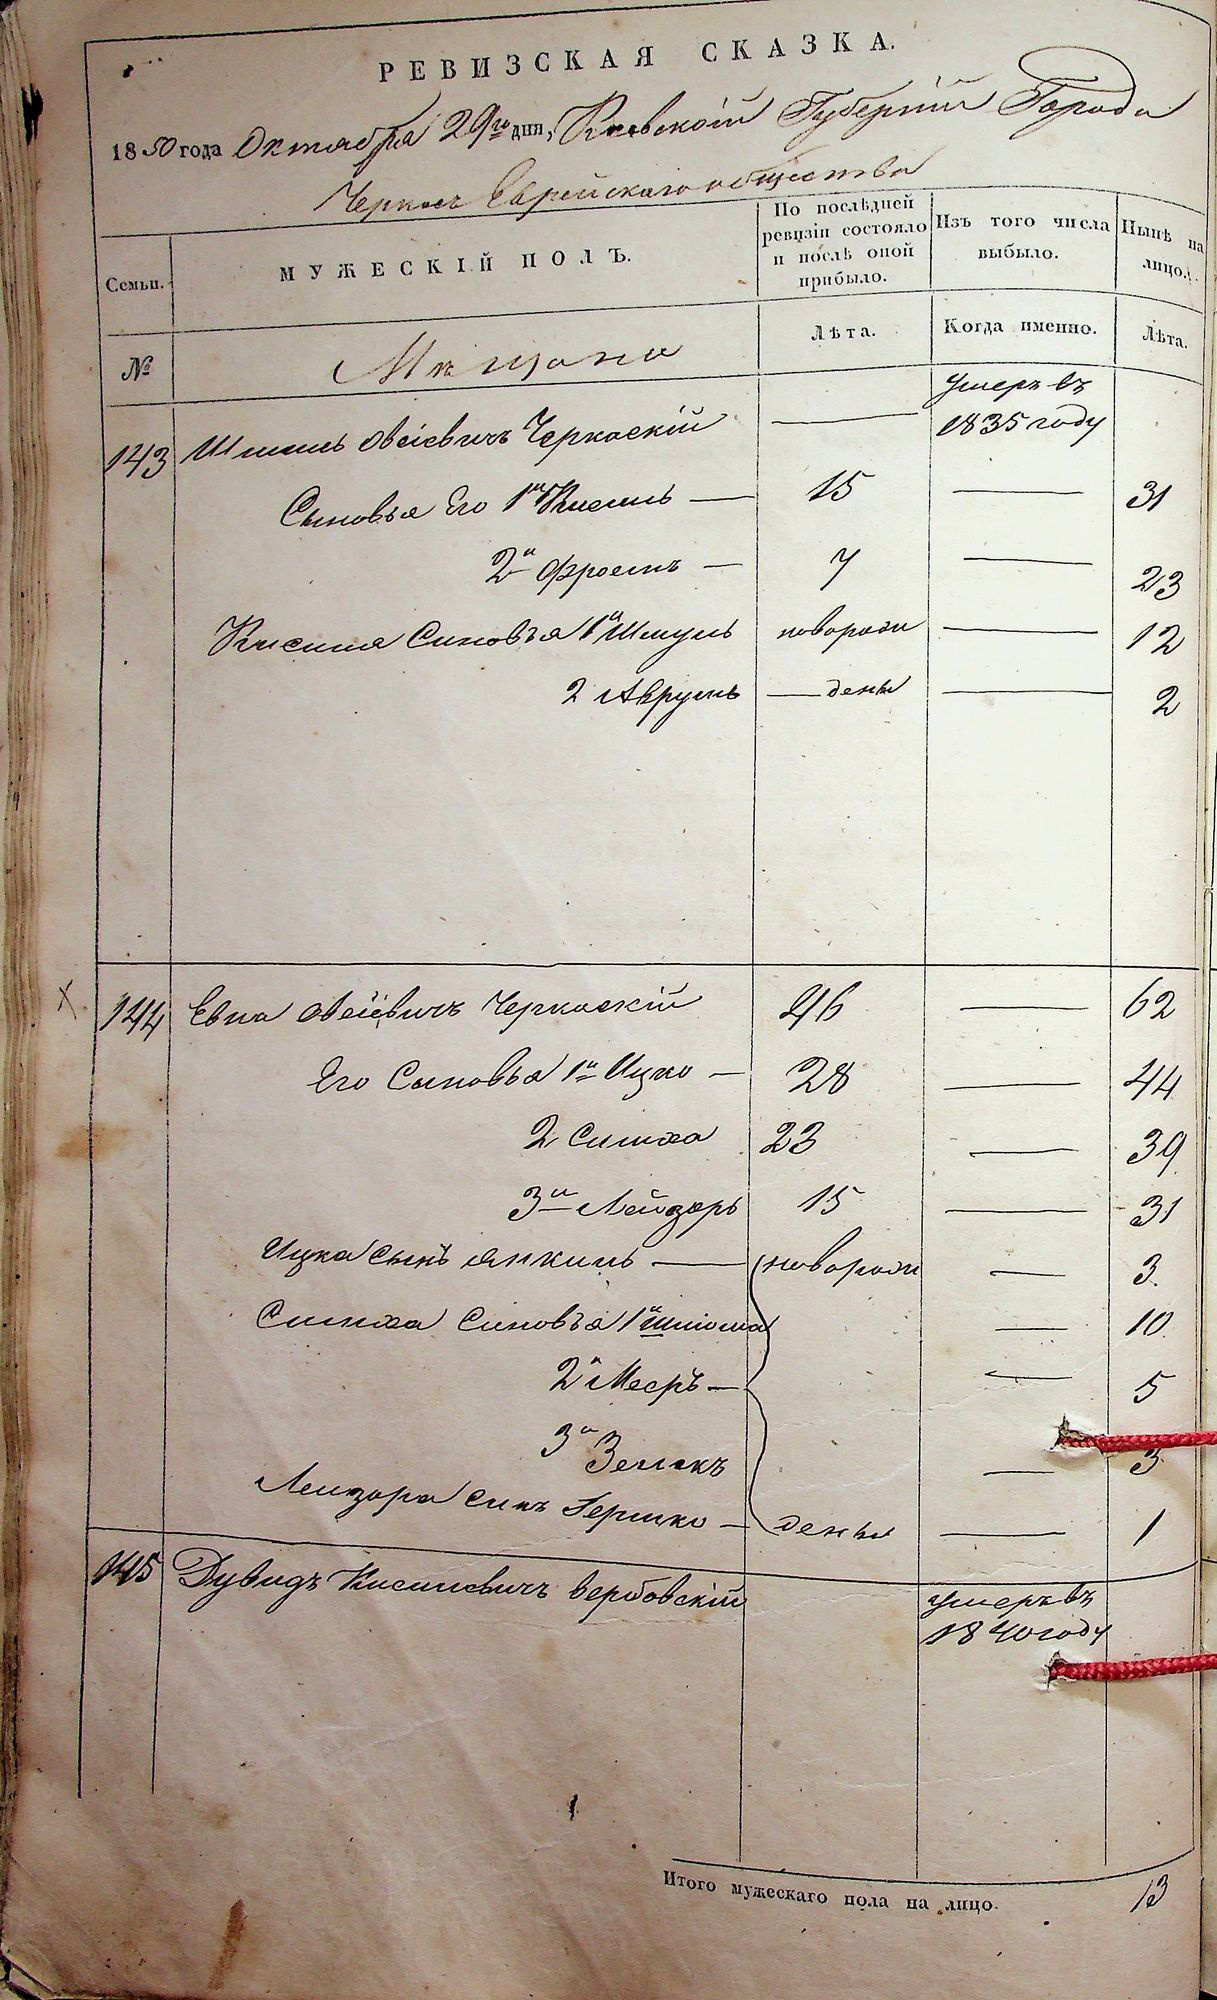 РЕВИЗСКАЯ СКАЗКА.
1850 года Октября 29го дня, Киевской Губерніи Города
Черкасъ Еврейскаго общества
Семьи. МУЖЕСКІЙ ПОЛЪ. По послѣдней ревизіи состояло и послѣ оной прибыло. Изъ того числа выбыло. Нынѣ на лицо.
№ Мещане Лѣта. Когда именно. Лѣта.
143 Шмиль Овсіевичъ Черкаскій — умеръ въ 1835 году
Сыновья Его 1й Кисиль — 15 — 31
2й Фроемъ — 7 — 23
Кисиля Синовья 1й Шмуль новорож — 12
2 Аврумъ — дены — 2
144 Евна Овсіевичъ Черкаскій 46 — 62
Его Сыновья 1й Ицко — 28 — 44
2 Симха 23 — 39
3й Лейзоръ 15 — 31
Ицка сынъ Янкиль — новорож — 3
Симха Синовья 1й Шліома — 10
2й Меєръ — — 5
3й Зеликъ — 3
Лейзора синъ Гершко — дены — 1
145 Дувидъ Кисилевичъ Вербовскій умеръ въ 1840 году
Итого мужескаго пола на лицо. 13